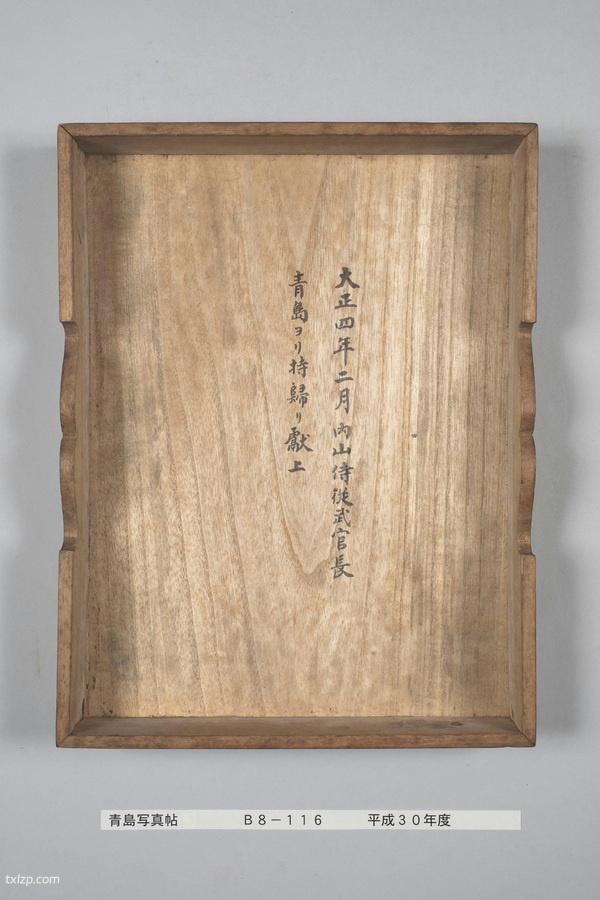 大正四年二月內山侍従武官長
青島ヨリ持歸リ獻上
青島写真帖 B8-116 平成30年度
txlzp.com